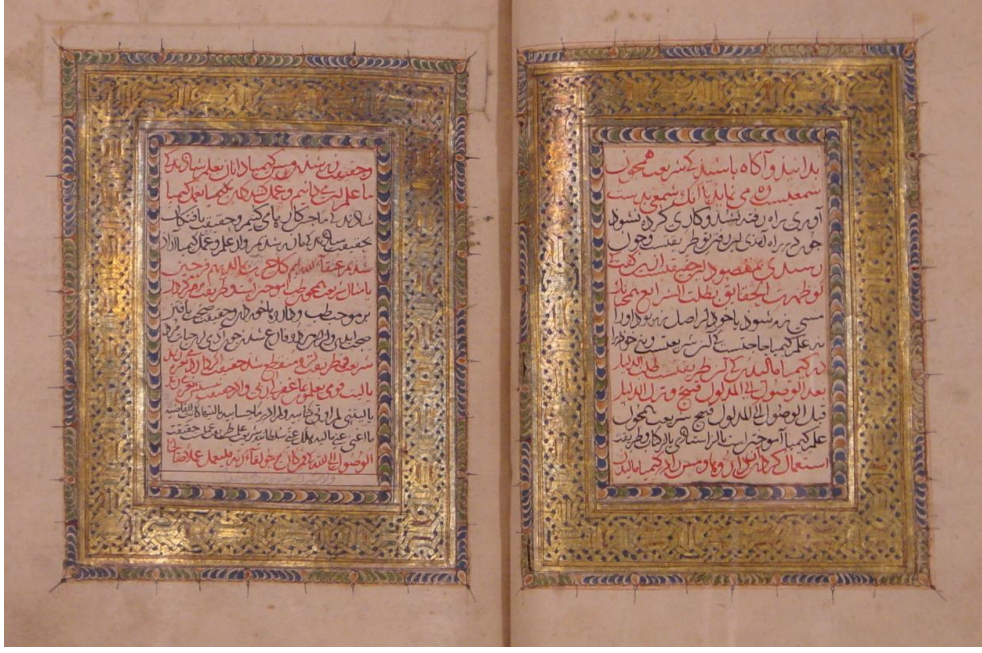 بدانید و آگاه باشید که شریعت همچون
شمعست ره می نماید بی آنک شمع بدست
آوری راه رفته نشد و کاری کرده نشود
چون در راه آمدی این رفتن تو طریقتست و چون
رسیدی بمقصود آن حقیقتست این گفت که
لو ظهرت الحقایق بطلت الشرایع همچنانک
مسی زر شود یا خود از اصل زر بود او را
نه علم کیمیا حاجتست که آن شریعتست و نی خود را
در کیمیا مالیدن که آن طریقتست طلب الدلیل
بعد الوصول الی المدلول قبیح و ترک الدلیل
قبل الوصول الی المدلول قبیح شریعت همچون
علم کیمیا آموختن است از استاد یا از کتاب و طریقت
استعمال کردن داروها و مس را در کیمیا مالیدن
و حقیقت زر شدن مس کیمیا دانان بعلم شادند که
ما علم این دانیم و عمل کنندگان کیمیا بعمل کیمیا
شادند که ما چنین کارها می کنیم و حقیقت یافتگان
بحقیقت شادند که ما زر شدیم و از علم و عمل کیمیا آزاد
شدیم عتقاء الله ایم کل حزب بما لدیهم فرحون
یا مثال شریعت همچو علم طب آموختن است و طریقت پرهیز کردن
بموجب طب و داروها خوردن و حقیقت صحت یافتن
صحت ابدی و از آن هر دو فارغ شدن چون آدمی از این حیات مرد
شریعت و طریقت از او منقطع شد حقیقت ماند اگر دارد نعره زند
یا لیت قومی یعلمون بما غفر لی ربی و اگر حقیقت نیست نعره زند
یا لیتنی لم اوت کتابیه و لم ادر ما حسابیه یا لیتها کانت القاضیه
ما اغنی عنی مالیه هلک عنی سلطانیه شریعت علم طریقت عمل حقیقت
الوصول الی الله فمن کان یرجو لقاء ربه فلیعمل عملا صالحا